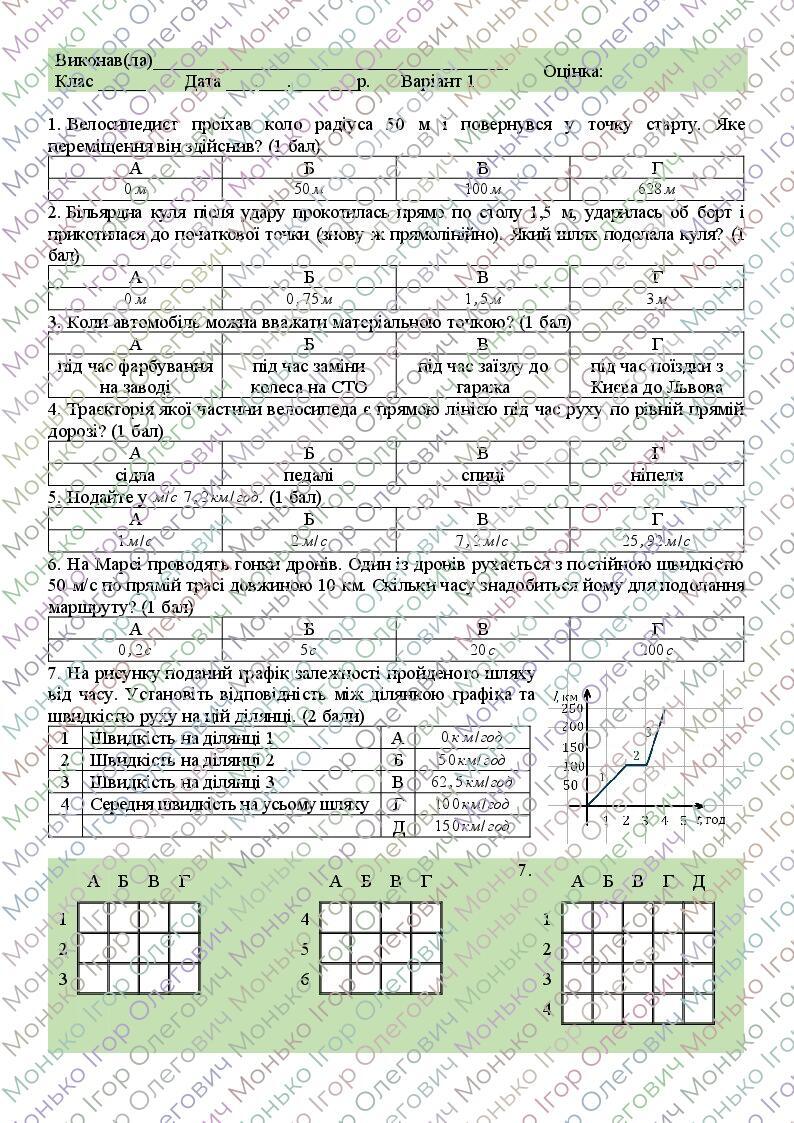 Виконав(ла)
Клас Дата . р. Варіант 1
Оцінка:
1. Велосипедист проїхав коло радіуса 50 м і повернувся у точку старту. Яке
переміщення він здійснив? (1 бал)
А Б В Г
0 м 50 м 100 м 628 м
2. Більярдна куля після удару прокотилась прямо по столу 1,5 м, ударилась об борт і
прикотилася до початкової точки (знову ж прямолінійно). Який шлях подолала куля? (1
бал)
А Б В Г
0 м 0,75 м 1,5 м 3 м
3. Коли автомобіль можна вважати матеріальною точкою? (1 бал)
А Б В Г
під час фарбування під час заміни під час заїзду до під час поїздки з
на заводі колеса на СТО гаража Києва до Львова
4. Траєкторія якої частини велосипеда є прямою лінією під час руху по рівній прямій
дорозі? (1 бал)
А Б В Г
сідла педалі спиці ніпеля
5. Подайте у м/с 7,2 км/год. (1 бал)
А Б В Г
1 м/с 2 м/с 7,2 м/с 25,92 м/с
6. На Марсі проводять гонки дронів. Один із дронів рухається з постійною швидкістю
50 м/с по прямій трасі довжиною 10 км. Скільки часу знадобиться йому для подолання
маршруту? (1 бал)
А Б В Г
0,2 с 5 с 20 с 200 с
7. На рисунку поданий графік залежності пройденого шляху
від часу. Установіть відповідність між ділянкою графіка та
швидкістю руху на цій ділянці. (2 бали)
1 Швидкість на ділянці 1 А 0 км/год
2 Швидкість на ділянці 2 Б 50 км/год
3 Швидкість на ділянці 3 В 62,5 км/год
4 Середня швидкість на усьому шляху Г 100 км/год
Д 150 км/год
l, км
250
200
150
100
50
1 2 3
1 2 3 4 5 t, год
А Б В Г
1
2
3
А Б В Г
4
5
6
7.
А Б В Г Д
1
2
3
4
Монько Ігор Олегович